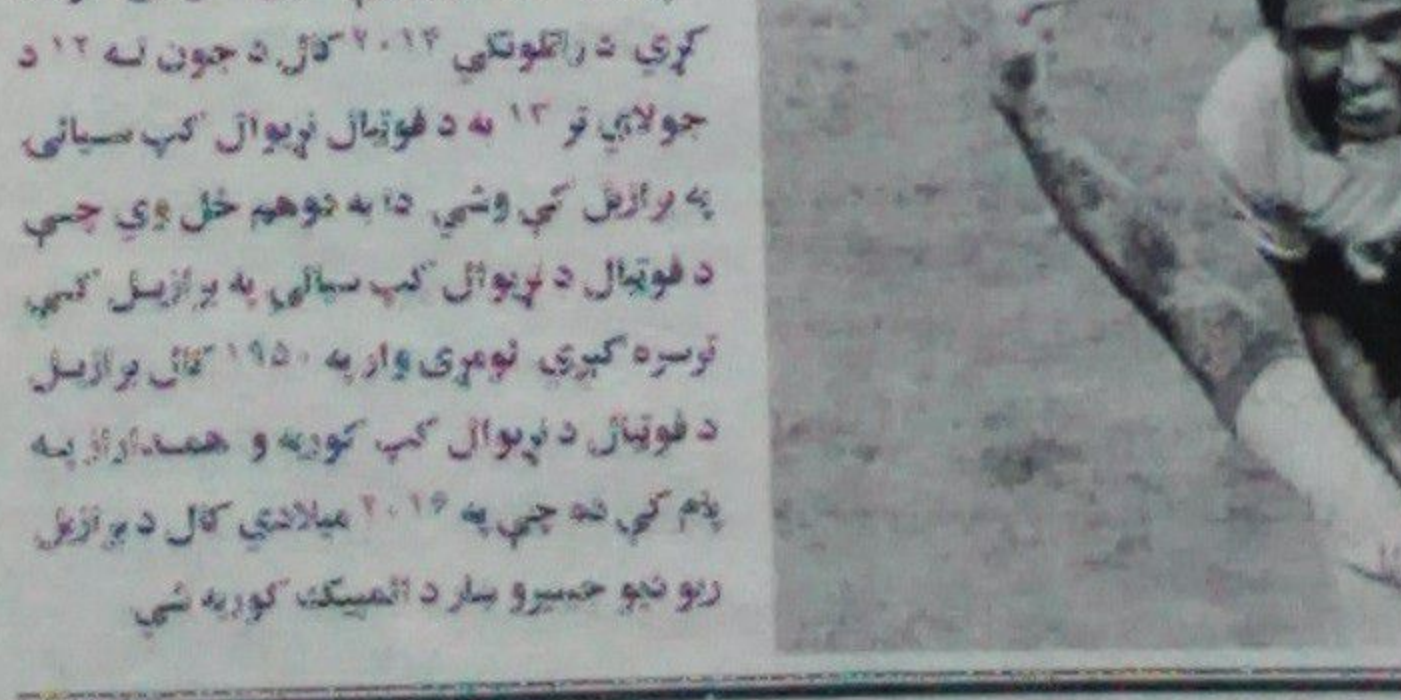 کړي د راتلونکي ۲۰۱۴ کال د جون له ۱۲ د
جولای تر ۱۳ به د فوټبال نړیوال کپ سیالی
په برازیل کې وشي. دا به دوهم ځل وي چې
د فوټبال د نړیوال کپ سیالي په برازیل کې
ترسره کیږي لومړی وار په ۱۹۵۰ کال برازیل
د فوټبال د نړیوال کپ کوربه و همداراز په
پام کې ده چې په ۲۰۱۶ میلادي کال د برازیل
ریو دیو جنیرو ښار د المپیک کوربه شي